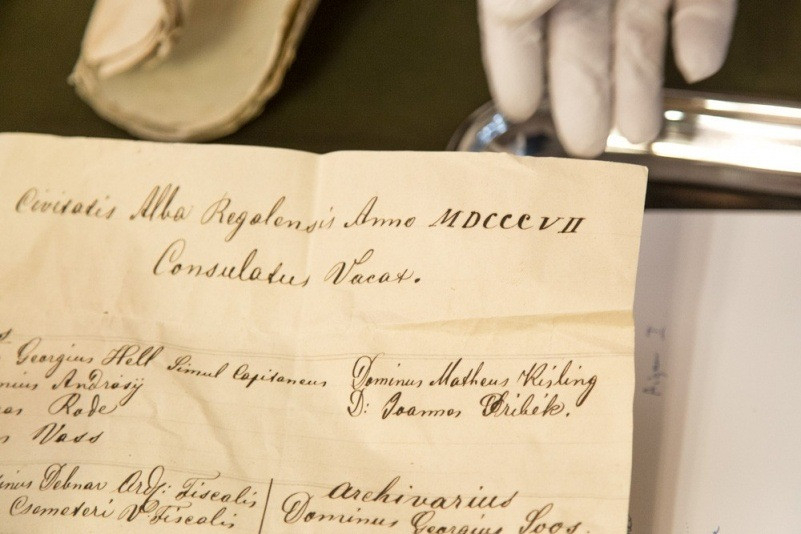 Civitatis Alba Regalensis Anno MDCCCVII
Consulatus Vacat.
Georgius Hell Simul Capitaneus
Andrásÿ
Rode
Vass
Dominus Matheus Kisling
D: Joannes Pribék.
Debnar Ord: Fiscalis
Csemeteri V. Fiscalis
Archivarius
Dominus Georgius Soos.